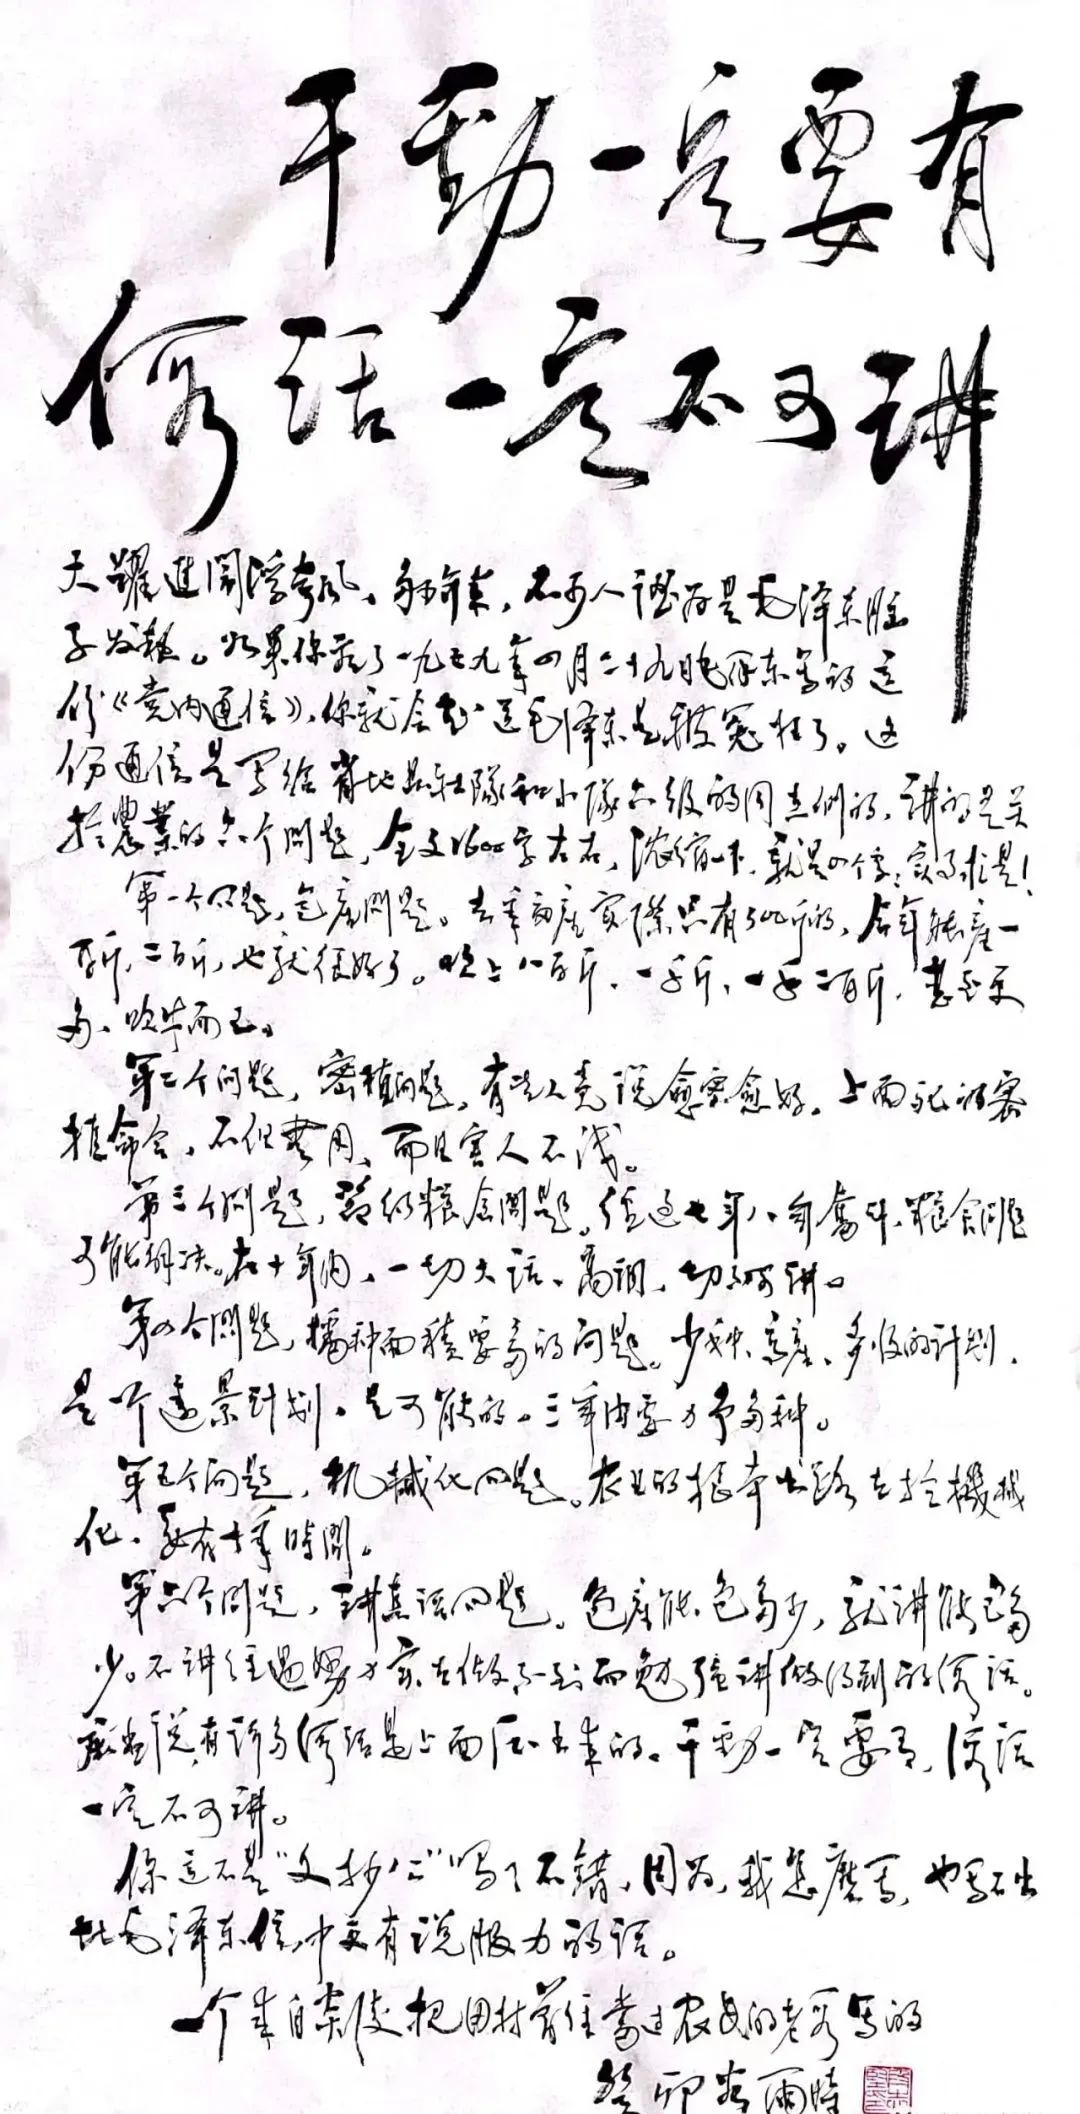 干劲一定要有
假话一定不可讲
大躍進闹浮夸风，多年来，不少人認为是毛泽东脑
子发热。如果你读了一九五九年四月二十九日毛泽东写的这
份《党内通信》，你就会知道毛泽东是被冤枉了。这
份通信是写给省地县社隊和小隊六级的同志们的，讲的是关
於農業的六个問题，全文1600字左右，浓缩一下，就是四个字：实事求是！
第一个问题，包产問题。去年亩产实際只有三百斤的，今年能产一
百斤，二百斤，也就很好了。吹上八百斤，一千斤，一千二百斤，甚至更
多，吹牛而已。
第二个问题，密植问题，有些人竟说愈密愈好。上面死的密
植命令，不但無用，而且害人不浅。
第三个問题，節约粮食問题，经过七年八年奮斗，粮食问题
可能解决。在十年内，一切大话、高调，切不可讲。
第四个問题，播种面積要多的问题。少种、高产、多收的计划，
是个遠景计划，是可能的。三年内要力争多种。
第五个问题，机械化问题。农业的根本出路在於機械
化，要有十年時間。
第六个問题，讲真话问题。包产能包多少，就讲能包多
少。不讲经过努力实在做不到而勉强讲做得到的假话。
应当说，有许多假话是上面压出来的。干劲一定要有，假话
一定不可讲。
你这不是“文抄公”吗？不错，因为，我怎麽写，也写不出
比毛泽东信中更有说服力的话。
一个来自把田村前任書记农民的老写的
癸卯谷雨時